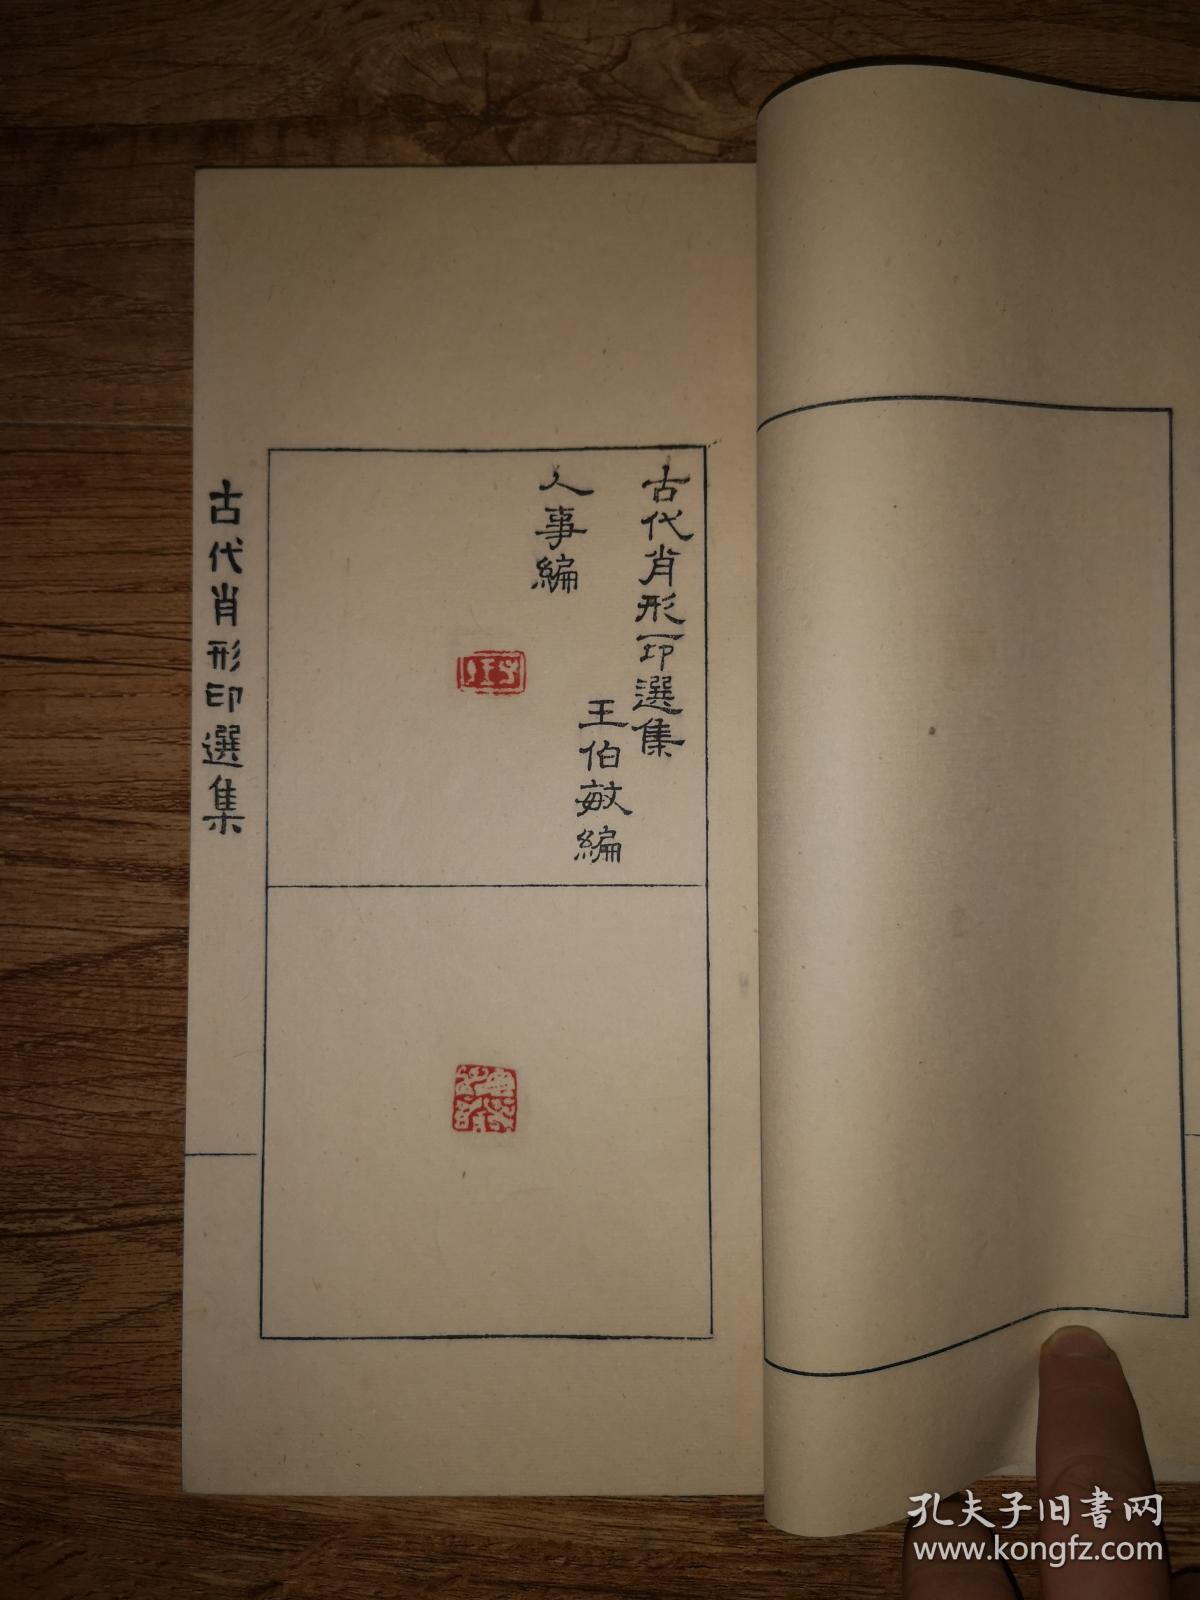 古代肖形印選集
王伯敏編
人事編
古代肖形印選集
孔夫子旧書网
www.kongfz.com